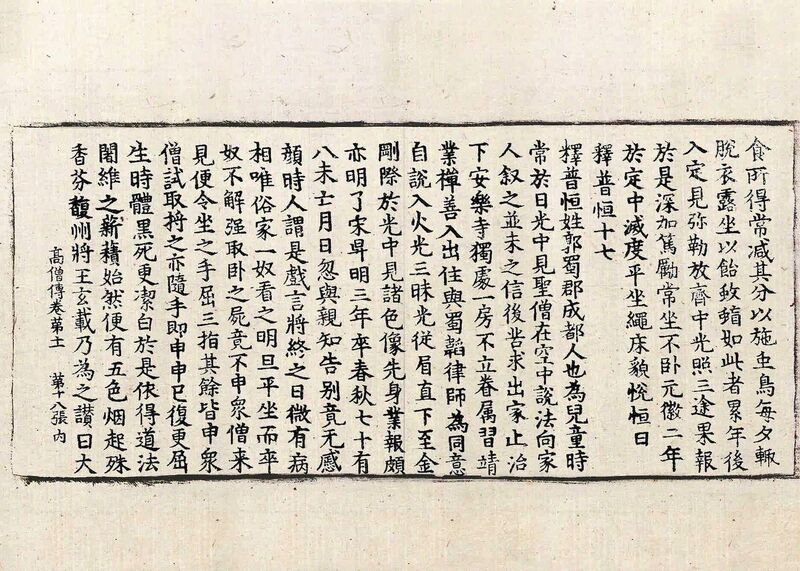 食所得常減其分以施虫鳥每夕輙
脫衣露坐以飴蚊蝱如此者累年後
入定見弥勒放齊中光照三途果報
於是深加篤勵常坐不卧元徽二年
於定中滅度平坐繩床貌悅恒日
釋普恒十七
釋普恒姓郭蜀郡成都人也為兒童時
常於日光中見聖僧在空中說法向家
人叙之並未之信後苦求出家止治
下安樂寺獨處一房不立眷属習靖
業禪善入出住與蜀韜律師為同意
自說入火光三昧光從眉直下至金
剛際於光中見諸色像先身業報頗
亦明了宋昇明三年卒春秋七十有
八未亡月日忽與親知告别竟无慼
顔時人謂是戲言將終之日微有病
相唯俗家一奴看之明旦平坐而卒
奴不解强取卧之屍竟不申眾僧来
見便令坐之手屈三指其餘皆申眾
僧試取捋之亦隨手即申申已復更屈
生時體黑死更潔白於是依得道法
闍維之薪䕸始然便有五色烟起殊
香芬馥州將王玄載乃為之讚曰大
高僧傳卷第十一 第十八張 内